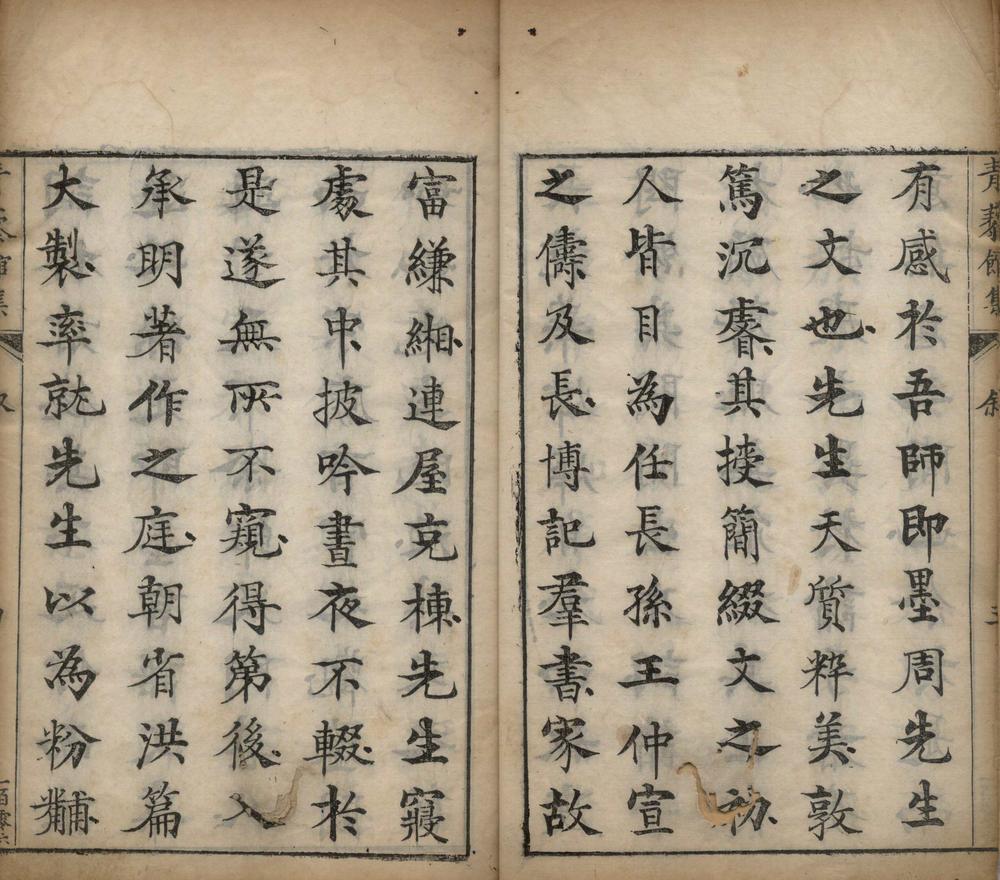 青藜館集 叙 三
有感於吾師即墨周先生
之文也先生天質粹美敦
篤沉睿其挾簡綴文之初
人皆目為任長孫王仲宣
之儔及長博記羣書家故
富縑緗連屋充棟先生寢
處其中披吟晝夜不輟於
是遂無所不窺得第後入
承明著作之庭朝省洪篇
大製率就先生以為粉黼